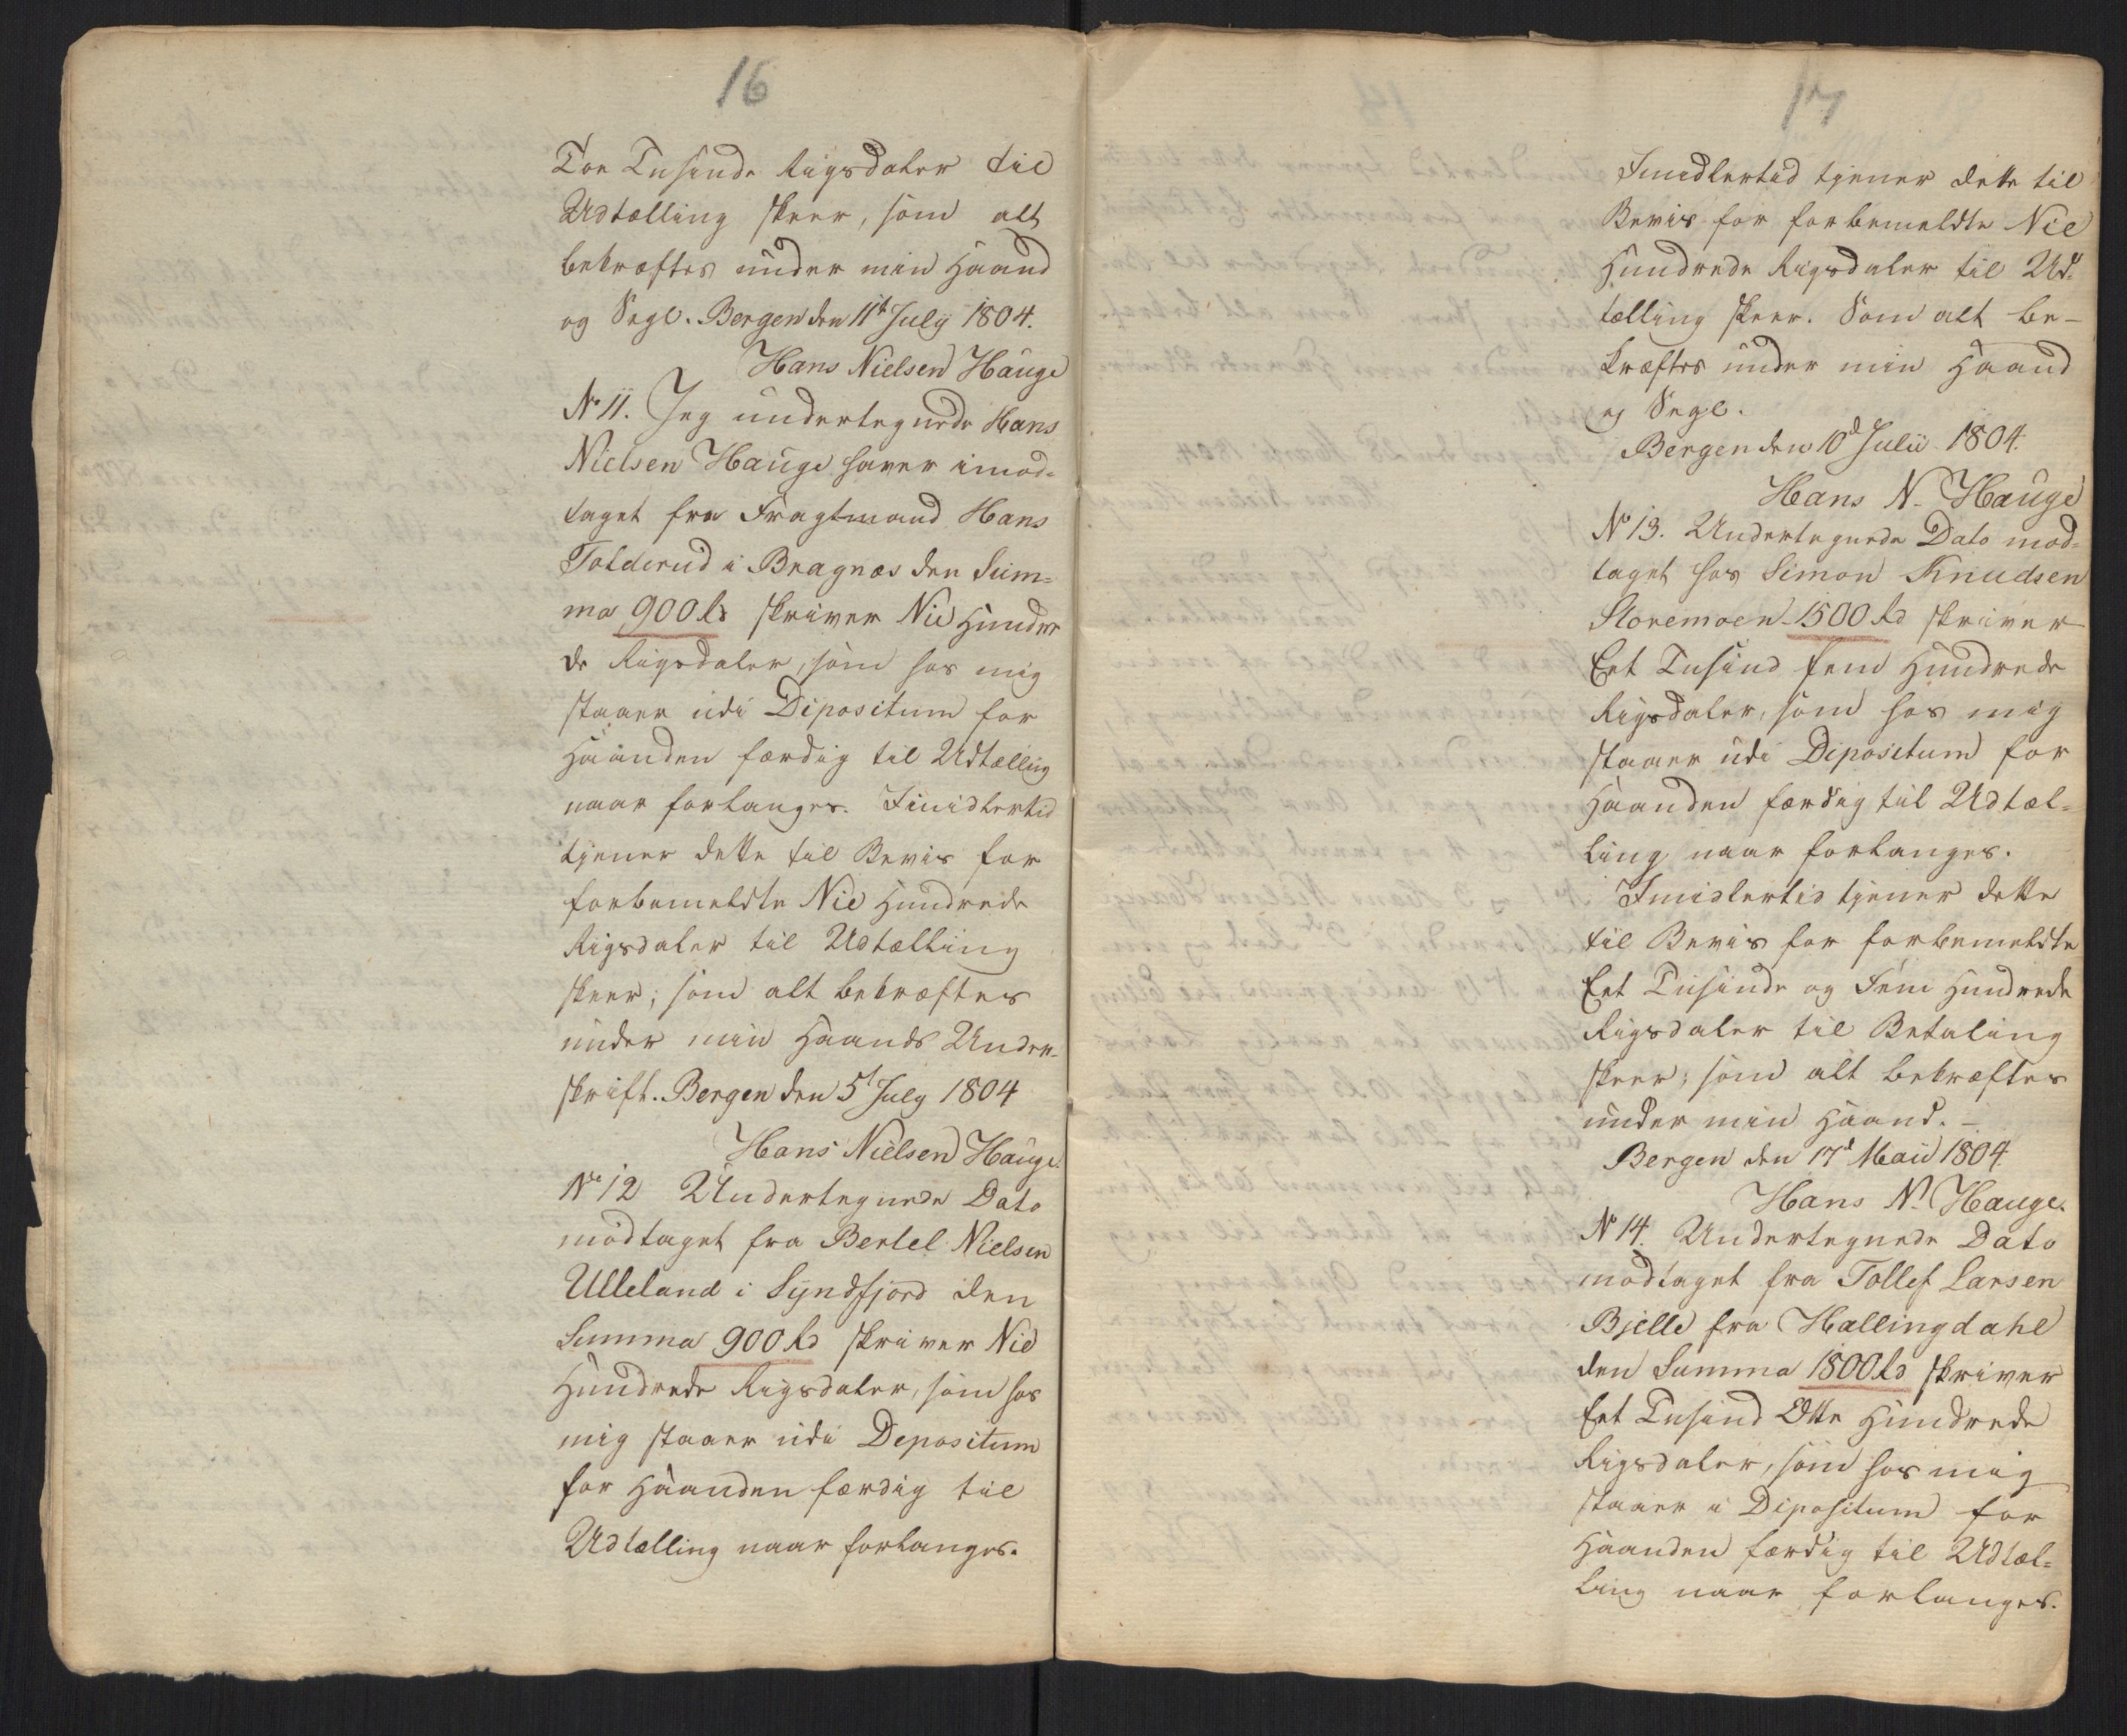 16
Toe Tusinde Rigsdaler til
Udtælling skeer, som alt
bekræftes under min Haand
og Segl. Bergen den 11te July 1804.
Hans Nielsen Hauge
No 11. Jeg undertegnede Hans
Nielsen Hauge haver imod-
taget fra Fragtmand Hans
Tolderud i Bragnæs den Sum-
ma 900 rd skriver Nie Hundre
de Rigsdaler, som hos mig
staaer udi Dipositum for
Haanden færdig til Udtælling
naar forlanges. Imidlertid
tjener dette til Bevis for
forbemeldte Nie Hundrede
Rigsdaler til Udtælling
skeer; som alt bekræftes
under min Haands Under-
skrift. Bergen den 5t July 1804
Hans Nielsen Hauge.
No 12 Undertegnede Dato
modtaget fra Bertel Nielsen
Ulleland i Syndfjord den
Summa 900 rd skriver Nie
Hundrede Rigsdaler, som hos
mig staaer udi Depositum
for Haanden færdig til
Udtælling naar forlanges.
17
Imidlertid tjener dette til
Bevis for forbemeldte Nie
Hundrede Rigsdaler til Ud-
tælling skeer. Som alt be-
kræftes under min Haand
og Segl.
Bergen den 10d Julii 1804.
Hans N. Hauge
No 13. Undertegnede Dato mod-
taget hos Simon Knudsen
Storemoen 1500 rd skriver
Eet Tusind fem Hundrede
Rigsdaler, som hos mig
staaer udi Dipositum for
Haanden færdig til Udtæl-
ling naar forlanges.
Imidlertid tjener dette
til Bevis for forbemeldte
Eet Tusinde og Fem Hundrede
Rigsdaler til Betaling
skeer; som alt bekræftes
under min Haand. -
Bergen den 17d Maii 1804
Hans N. Hauge.
No 14. Undertegnede Dato
modtaget fra Tollef Larsen
Bjelle fra Hallingdahl
den Summa 1800 rd skriver
Eet Tusind Otte Hundrede
Rigsdaler, som hos mig
staaer i Dipositum for
Haanden færdig til Udtæl-
ling naar forlanges.